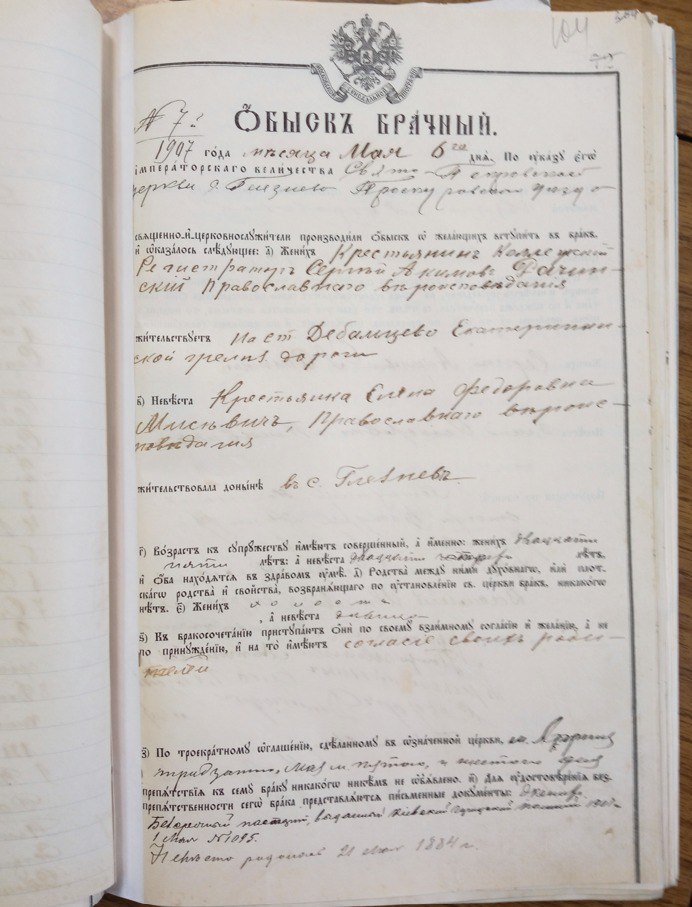 104
№ 7й
Ѻбыскъ брачный.
1907 года мѣсяца Мая 6го дня. По указу егѡ
императорскагѡ величества Свято-
церкви с. Глезнево Проскуровскаго уѣзда
священно-и-церковнослужители производили ѻбыскъ ѡ желающихъ вступить въ бракъ.
и ѡказалось слѣдующее: а) Женихъ Крестьянинъ Коллежскій
Регистраторъ Сергѣй Акимовъ
Православнаго вѣроисповѣданія
жительствуетъ на ст. Дебальцево Екатеринин-
ской дороги
в) Невѣста Крестьянка Елена Федоровна
Мисѣвичъ, Православнаго вѣроис-
повѣданія
жительствовала донынѣ въ с. Глезневѣ.
г) Возрастъ къ супружеству имѣютъ совершенный, а именно: женихъ двадцати
пяти лѣтъ: а невѣста двадцати лѣтъ.
и ѻба находятся въ здравомъ умѣ. д) Родства между ними духовнагѡ, или плот-
скагѡ родства и свойства, возбраняющаго по установленію св. церкви бракъ, никакогѡ
нѣтъ. є) Женихъ холостъ
, а невѣста дѣвица
ѕ) Къ бракосочетанію приступаютъ ѻни по своему взаимному согласію и желанію, а не
по принужденію, и на то имѣютъ согласіе своихъ роди-
телей
з) По троекратному ѡглашенію, сдѣланному въ ѡзначенной церкви, Апрѣля
тридцатаго, Мая пятаго, и шестого дня
препятствія къ сему браку никакогѡ никѣмъ не ѡбъявлено. и) Для удостовѣренія без-
препятственности сегѡ брака представляются письменные документы:
паспортъ, выданный 1907
1 Мая № 1095.
Невѣста родилась 21 мая 1884 г.